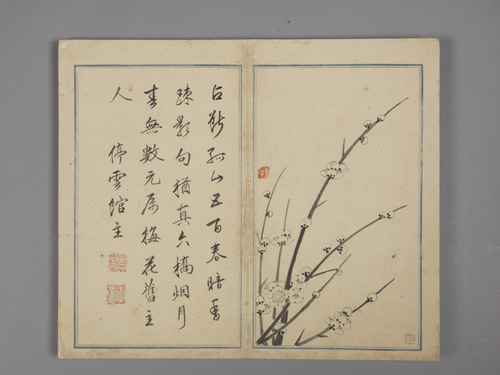 占斷孤山五百春暗香
疎影句猶真六橋烟月
春無數元屬梅花舊主
人 停雲館主